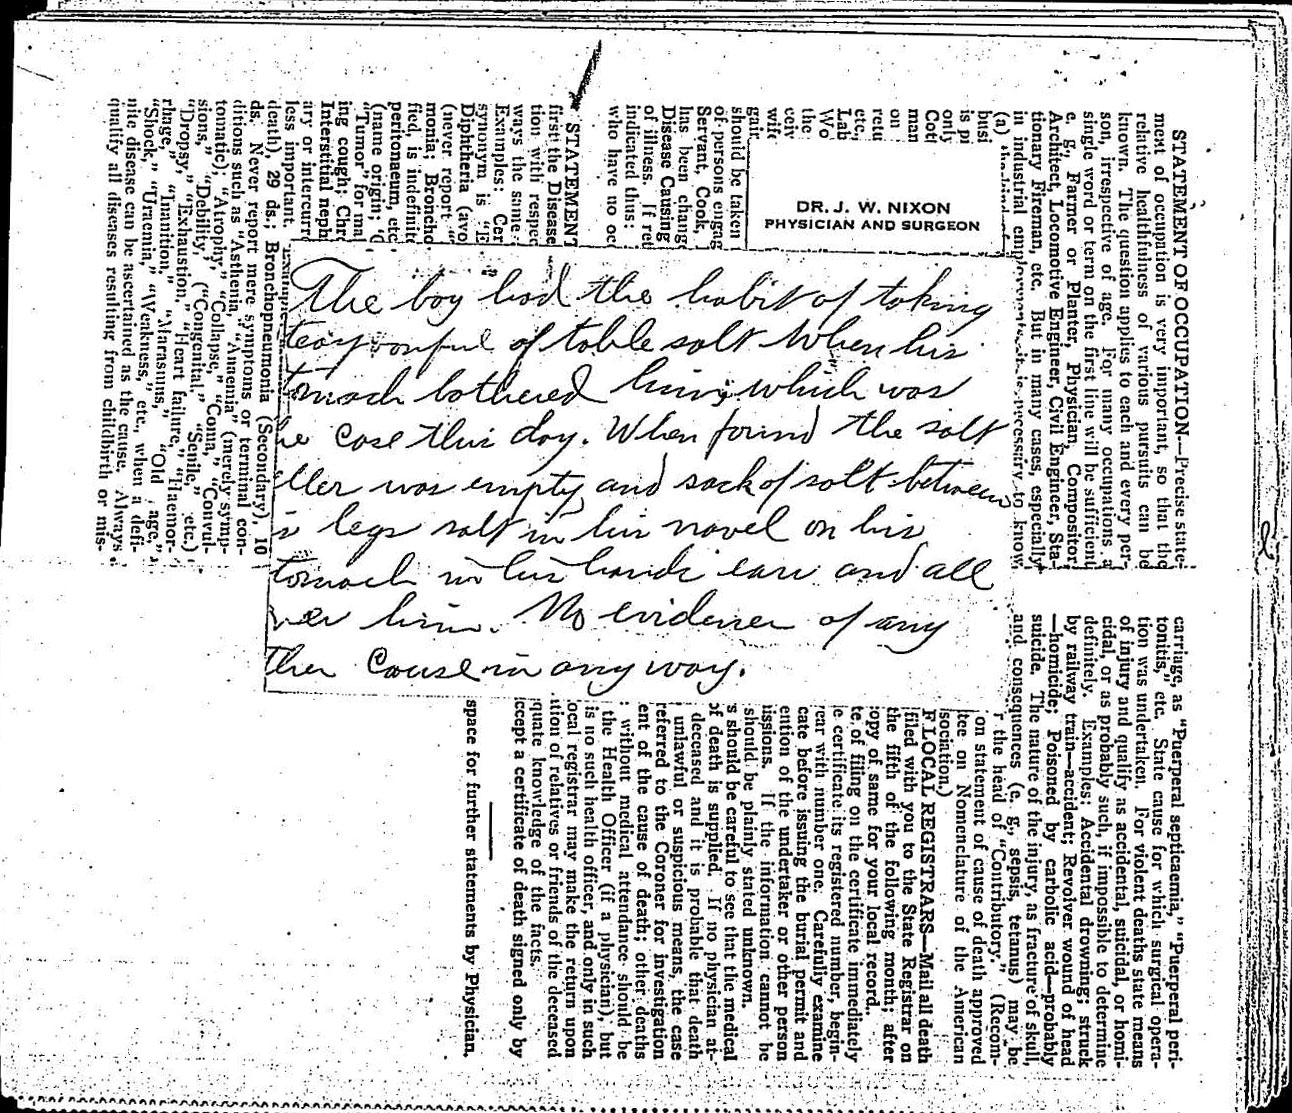 DR. J. W. NIXON
PHYSICIAN AND SURGEON
The boy had the habit of taking
teaspoonful of table salt when his
tomach bothered him; which was
he case this day. When found the salt
eller was empty, and sack of salt between
is legs salt in his navel on his
tomach in his hands ears and all
ver him. No evidence of any
ther cause in any way.
STATEMENT OF OCCUPATION—Precise state-
ment of occupation is very important, so that the
relative healthfulness of various pursuits can be
known. The question applies to each and every per-
son, irrespective of age. For many occupations a
single word or term on the first line will be sufficient
e. g., Farmer or Planter, Physician, Compositor,
Architect, Locomotive Engineer, Civil Engineer, Sta-
tionary Fireman, etc. But in many cases, especially
in industrial employments, it is necessary to know
(a)
busi
is pi
only
Cott
man
on
retu
etc.,
Lab
Wo
the
ceiv
wife
gair
should be taken
of persons engag
Servant, Cook,
has been change
Disease Causing
of illness. If ret
indicated thus:
who have no oc
STATEMENT
first the Disease
tion with respec
ways the same
Examples: Cer
synonym is "E
Diphtheria (avo
(never report "
monia; Broncho
fied, is indefinite
peritonaeum, etc
(name origin; "C
"Tumor" for mal
ing cough; Chro
Interstitial nephr
ary or intercurre
less important.
death), 29 ds.; Bronchopneumonia (Secondary), 10
ds. Never report mere symptoms or terminal con-
ditions such as "Asthenia," "Anaemia" (merely symp-
tomatic), "Atrophy," "Collapse," "Coma," "Convul-
sions," "Debility," ("Congenital," "Senile," etc.)
"Dropsy," "Exhaustion," "Heart failure," "Haemor-
rhage," "Inanition," "Marasmus," "Old age,"
"Shock," "Uraemia," "Weakness," etc., when a defi-
nite disease can be ascertained as the cause. Always
qualify all diseases resulting from childbirth or mis-
carriage, as "Puerperal septicaemia," "Puerperal peri-
tonitis," etc. State cause for which surgical opera-
tion was undertaken. For violent deaths state means
of injury and qualify as accidental, suicidal, or homi-
cidal, or as probably such, if impossible to determine
definitely. Examples: Accidental drowning; struck
by railway train—accident; Revolver wound of head
—homicide; Poisoned by carbolic acid—probably
suicide. The nature of the injury, as fracture of skull,
and consequences (e. g., sepsis, tetanus) may be
r the head of "Contributory." (Recom-
on statement of cause of death approved
tee on Nomenclature of the American
sociation.)
F LOCAL REGISTRARS—Mail all death
filed with you to the State Registrar on
the fifth of the following month; after
opy of same for your local record.
te of filing on the certificate immediately
e certificate its registered number, begin-
ear with number one. Carefully examine
cate before issuing the burial permit and
ention of the undertaker or other person
issions. If the information cannot be
should be plainly stated unknown.
s should be careful to see that the medical
of death is supplied. If no physician at-
deceased and it is probable that death
unlawful or suspicious means, the case
referred to the Coroner for investigation
ent of the cause of death; other deaths
without medical attendance should be
the Health Officer (if a physician), but
is no such health officer, and only in such
ocal registrar may make the return upon
tion of relatives or friends of the deceased
quate knowledge of the facts.
ccept a certificate of death signed only by
space for further statements by Physician.